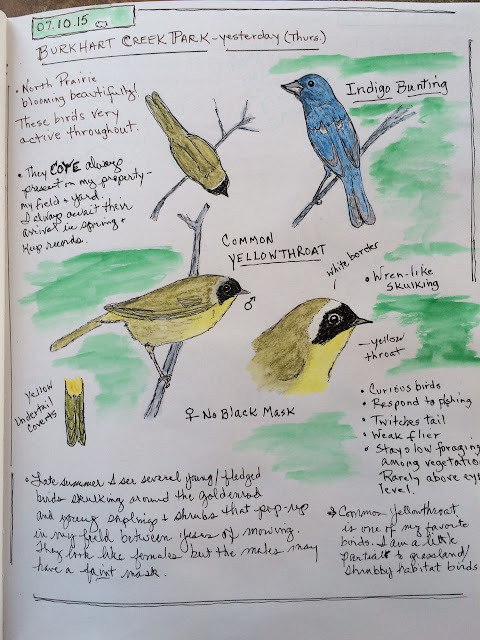 07.10.15
BURKHART CREEK PARK - yesterday (Thurs.)
• North Prairie
blooming beautifully!
These birds very
active throughout.
• They COYE always
present on my property -
my field + yard.
I always await their
arrival in spring +
keep records.
Indigo Bunting
COMMON
YELLOWTHROAT
♂
white border
• Wren-like
skulking
yellow
throat
Yellow
Undertail
coverts
♀ No Black Mask
• Curious birds
• Respond to pishing
• Twitches tail
• Weak flier
• Stays low foraging
among vegetation
Rarely above eye
level.
• Late summer I see several young/fledged
birds skulking around the goldenrod
and young saplings + shrubs that pop-up
in my field between years of mowing.
They look like females but the males may
have a faint mask.
Common Yellowthroat
is one of my favorite
birds. I am a little
partial to grassland/
shrubby habitat birds